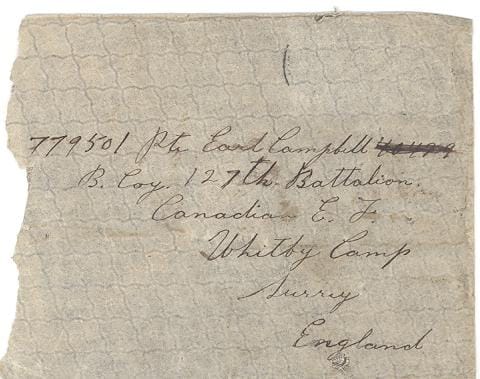 779501 Pte Earl Campbell
B. Coy. 127th Battalion.
Canadian E. F.
Whitby Camp
Surrey
England